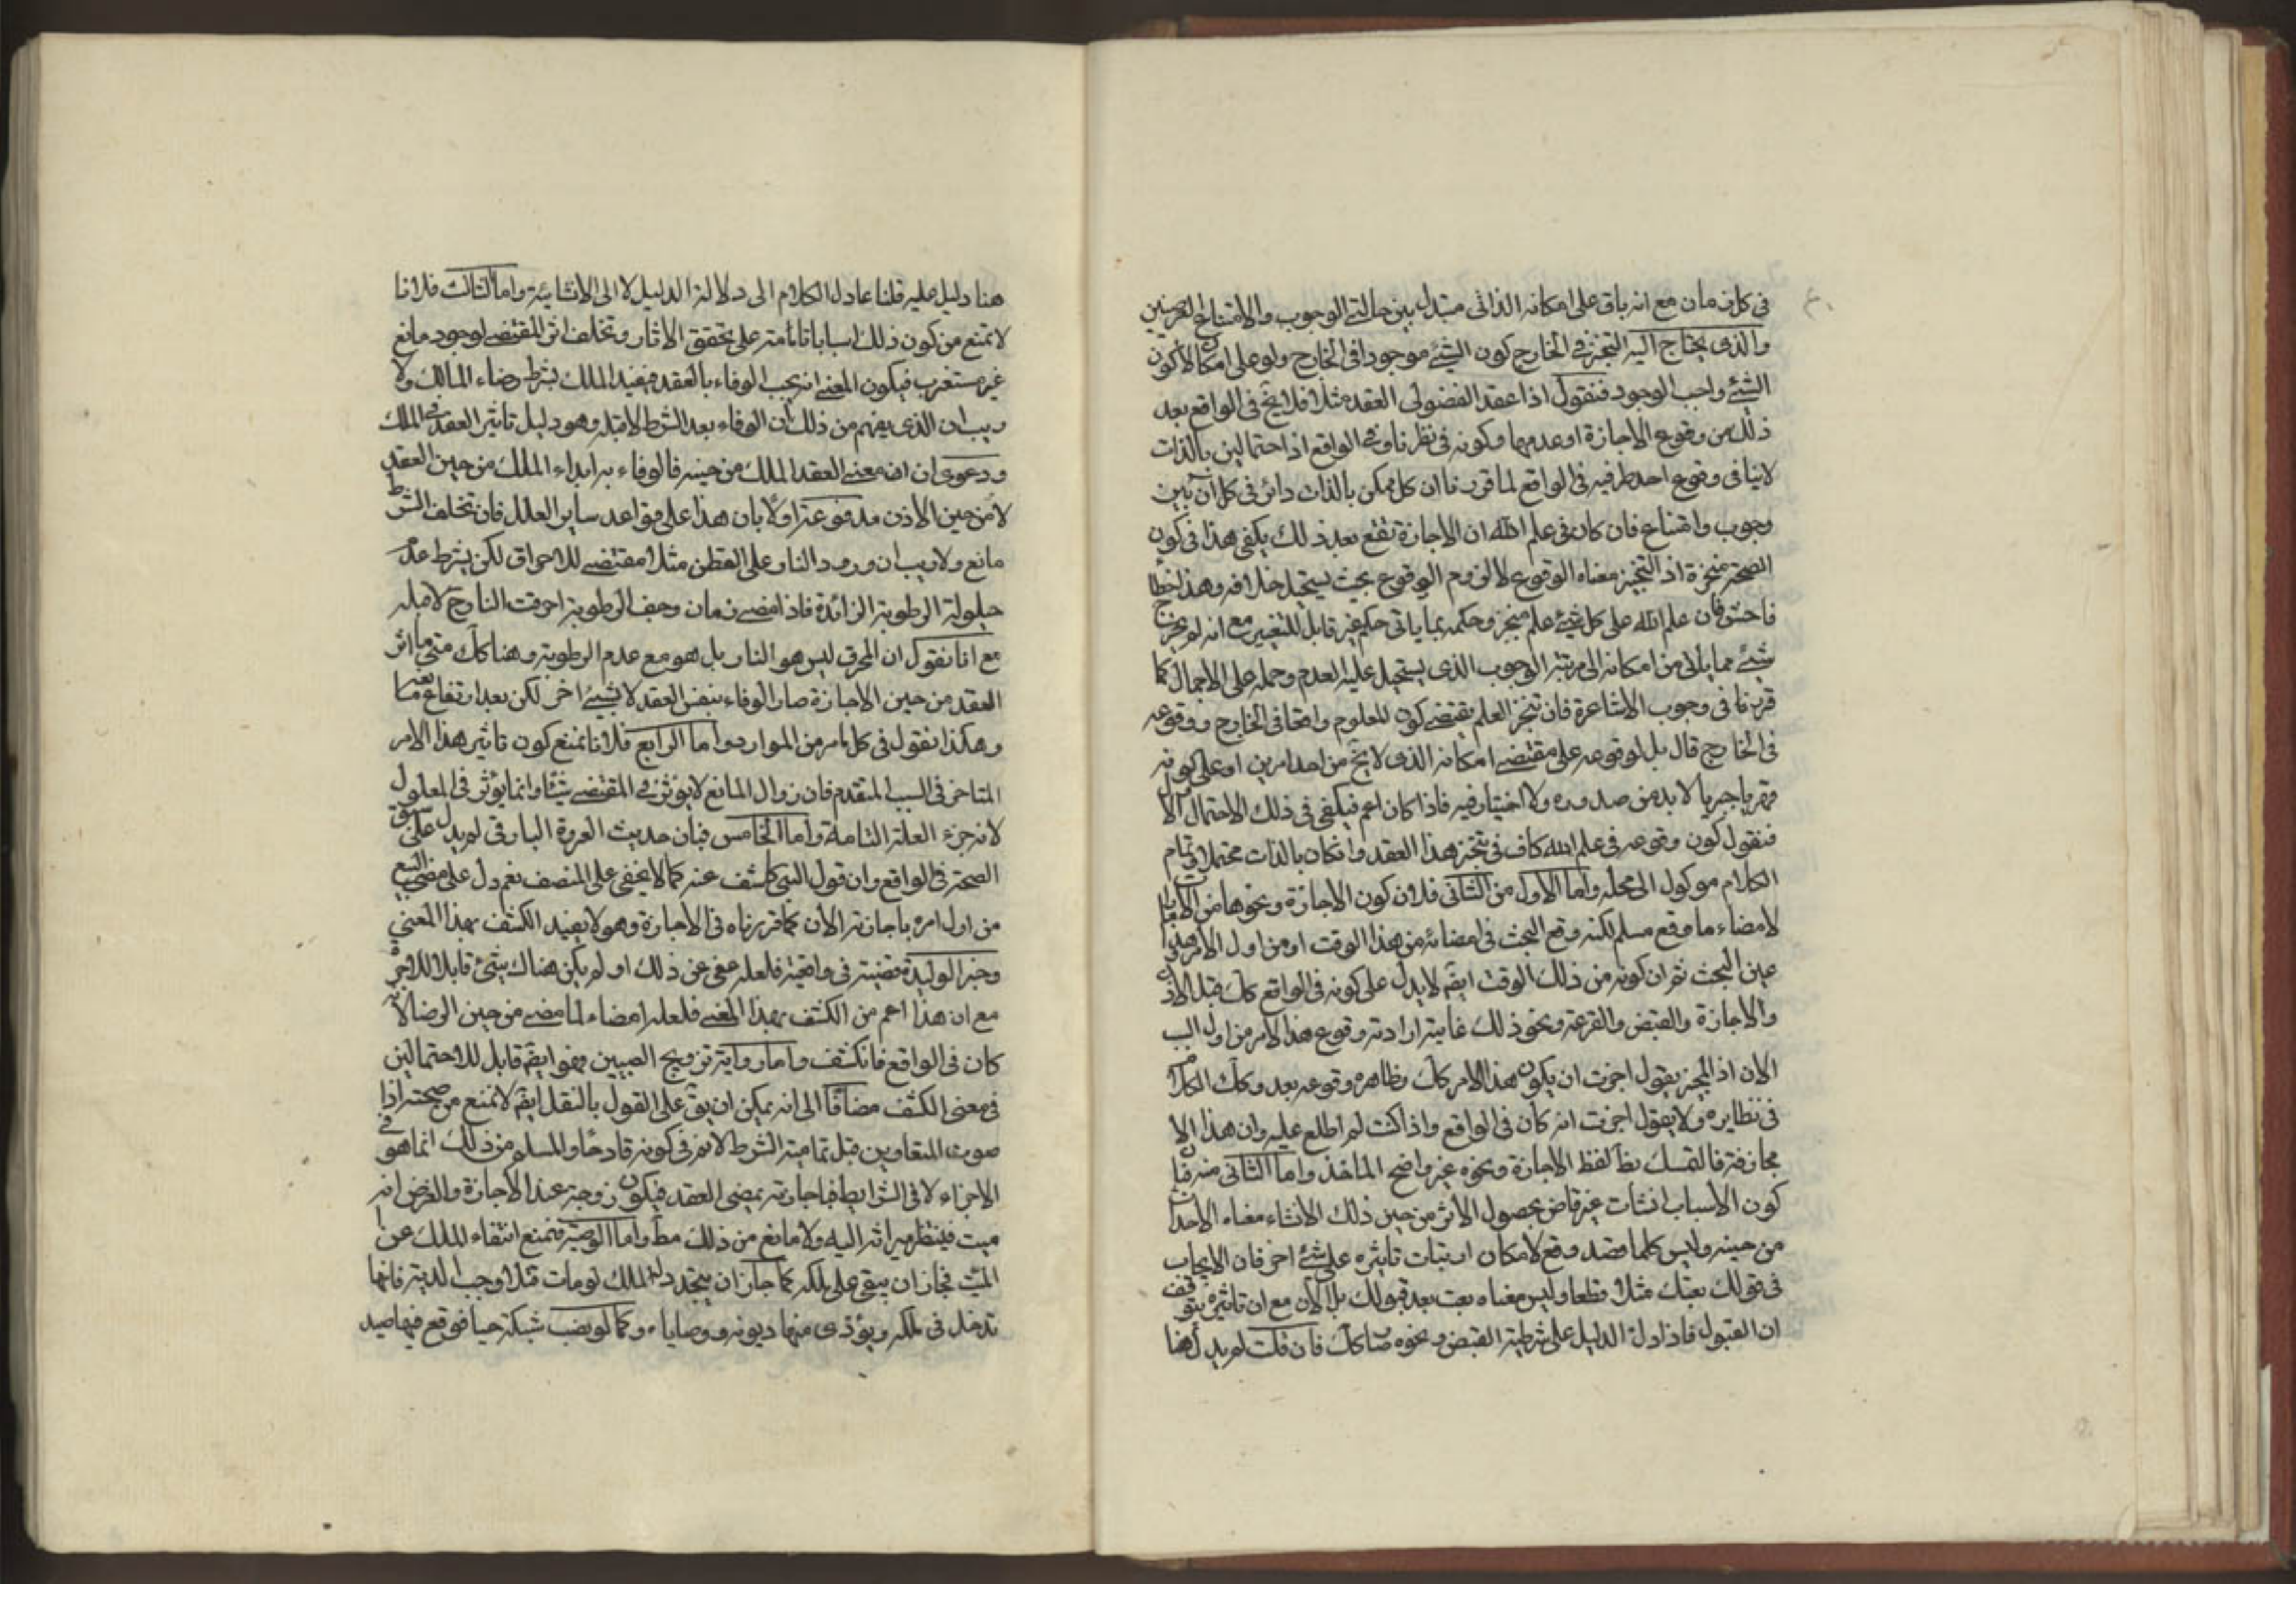 في كل زمان مع انه باق على امكانه الذاتي متبدل بين حالتي الوجوب والامتناع العرضيين
والذي يحتاج اليه التنجيز في الخارج كون الشيء موجودا في الخارج ولو على امكانه لا كون
الشيء واجب الوجود فنقول اذا عقد الفضولى العقد مثلا فلا يخ في الواقع بعد
ذلك من وقوع الاجازة او عدمها وكونه في نظرنا وفي الواقع اذا احتمالين بالذات
لاينافى وقوع احد طرفيه في الواقع لما قررنا ان كل ممكن بالذات دائر في كل ان بين
وجوب وامتناع فان كان في علم الله ان الاجازة تقع بعد ذلك يكفى هذا في كون
الصحة منجزة اذ التنجيز معناه الوقوع لا لزوم الوقوع بحيث يستحيل خلافه وهذا خطأ
فاحش فان علم الله على كل شيء علم منجز وحكمه بما ياتى حكم غير قابل للتغيير مع انه لم يخرج
شيء مما يلاقى من امكانه الى مرتبة الوجوب الذى يستحيل عليه العدم وحمله على الاجمال كما
قررنا في وجوب الاشاعرة فان تنجز العلم يقتضي كون المعلوم واقعا في الخارج ووقوعه
في الخارج قال بل لوقوعه على مقتضى امكانه الذى لا يخ من احد امرين او على كونه
قهريا جبريا لابد من صدوره ولا اختيار فيه فاذا كان اعم فيكفى في ذلك الاحتمال الاول
فنقول كون وقوعه في علم الله كاف في تنجز هذا العقد وان كان بالذات محتملا وتمام
الكلام موكول الى محله واما الاول من الثانى فلان كون الاجازة ونحوها من
لامضاء ما وقع مسلم لكنه وقع البحث في امضائه من هذا الوقت او من اول الامر وهذا
عين البحث ثم ان كونه من ذلك الوقت ايضم لا يدل على كونه في الواقع كك قبل الاذن
والاجازة والقبض والقرعة ونحو ذلك غايته ارادته وقوع هذا الامر من اول السبب
الان اذ المجيز يقول اجزت ان يكون هذا الامر كك وظاهره وقوعه بعد وكك الكلام
في نظايره ولا يقول اجزت انه كان في الواقع واذا كنت لم اطلع عليه وان هذا الا
مجازفة فالتمسك بظ لفظ الاجازة ونحوه غير واضح الماخذ واما الثانى منه فلان
كون الاسباب انشات غير قاض بحصول الاثر من حين ذلك الانشاء معناه الاحداث
من حينه وليس كلما قصد وقع لامكان ارتباب تاثيره على شيء اخر فان الايجاب
في قولك بعتك مثلا قطعا وليس معناه بعت بعد قبولك بل الان مع ان تاثيره يتوقف
ان القبول فاذا دل الدليل على شرطية القبض ونحوه صار كك فان قلت لم يدل هنا
هنا دليل عليه قلنا عاد الكلام الى دلالة الدليل لا الى الانشائية واما الثالث فلانا
لا نمنع من كون ذلك اسبابا تامة على تحقق الاثار وتخلف اثر المقتضى لوجود مانع
غير مستغرب فيكون المعنى انه يجب الوفاء بالعقد فيفيد الملك بشرط رضاء المالك ولا
ريب ان الذى يفهم من ذلك ان الوفاء بعد الشرط لا قبله وهو دليل تاثير العقد في الملك
ودعوى ان معنى العقد الملك من حينه فالوفاء به ابداء الملك من حين العقد
لا من حين الاذن مدفوعة اولا بان هذا على قواعد ساير العلل فان تخلف الشرط
مانع ولا ريب ان ورود النار على القطن مثلا مقتضى للاحراق لكن بشرط عدم
حيلولة الرطوبة الزائدة فاذا مضى زمان وجف الرطوبة احرقت النار ح لا قبله
مع انا نقول ان المحرق ليس هو النار بل هو مع عدم الرطوبة وهنا كك متى ما اثر
العقد من حين الاجازة صار الوفاء بنفس العقد لا بشيء اخر لكن بعد ارتفاع
وهكذا نقول في كل امر من الموارد واما الرابع فلانا نمنع كون تاثير هذا الامر
المتاخر في السبب المتقدم فان زوال المانع لا يؤثر في المقتضى شيئا وانما يؤثر في المعلول
لانه جزء العلة التامة واما الخامس فبان حديث العروة البارقى لم يدل على سبق
الصحة في الواقع وان قول النبى كاشف عنه كما لا يخفى على المنصف نعم دل على مضى البيع
من اول امره باجازته الان كما قررناه في الاجازة وهو لا يفيد الكشف بهذا المعنى
وخبر الوليدة قضية في واقعة فلعله عفى عن ذلك او لم يكن هناك شيء قابلا للاجرة
مع ان هذا اعم من الكشف بهذا المعنى فلعله امضاء لما مضى من حين الرضا لا انه
كان في الواقع فانكشف واما رواية تزويج الصبيين فهو ايضم قابل للاحتمالين
في معنى الكشف مضافا الى انه يمكن ان يق على القول بالنقل ايضم لا نمنع من صحته اذا
موت المتعاوين قبل تمامية الشرط لا نم في كونه قادحا والمسلم من ذلك انما هو في
الاجزاء لا في الشرايط فباجازته يمضى العقد فيكون زوجة عند الاجازة والفرض انه
ميت فينتظر ميراثه اليه ولا مانع من ذلك مط واما الوصية فنمنع انتفاء الملك عن
الميت فجاز ان يبقى على ملكه كما جاز ان يتجدد له الملك لو مات قتلا اوجب الدية فانها
تدخل في ملكه ويؤدى منها ديونه ووصاياه وكما لو نصب شبكة حيا فوقع فيها صيد